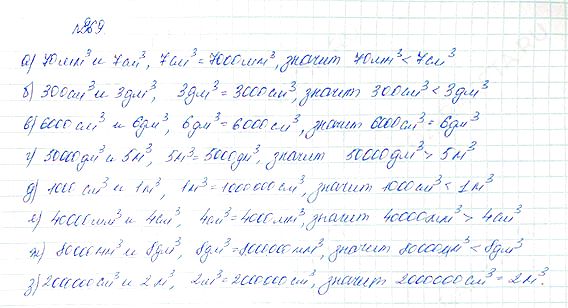 № 869
а) 70мм³ и 7см³, 7см³ = 7000мм³, значит 70мм³ < 7см³
б) 300см³ и 3дм³, 3дм³ = 3000см³, значит 300см³ < 3дм³
в) 6000см³ и 6дм³, 6дм³ = 6000см³, значит 6000см³ = 6дм³
г) 50000дм³ и 5м³, 5м³ = 5000дм³, значит 50000дм³ > 5м³
д) 1000 см³ и 1м³, 1м³ = 1000000см³, значит 1000см³ < 1м³
е) 40000мм³ и 4см³, 4см³ = 4000мм³, значит 40000мм³ > 4см³
ж) 80000мм³ и 8дм³, 8дм³ = 8000000мм³, значит 80000мм³ < 8дм³
з) 2000000см³ и 2м³, 2м³ = 2000000см³, значит 2000000см³ = 2м³.